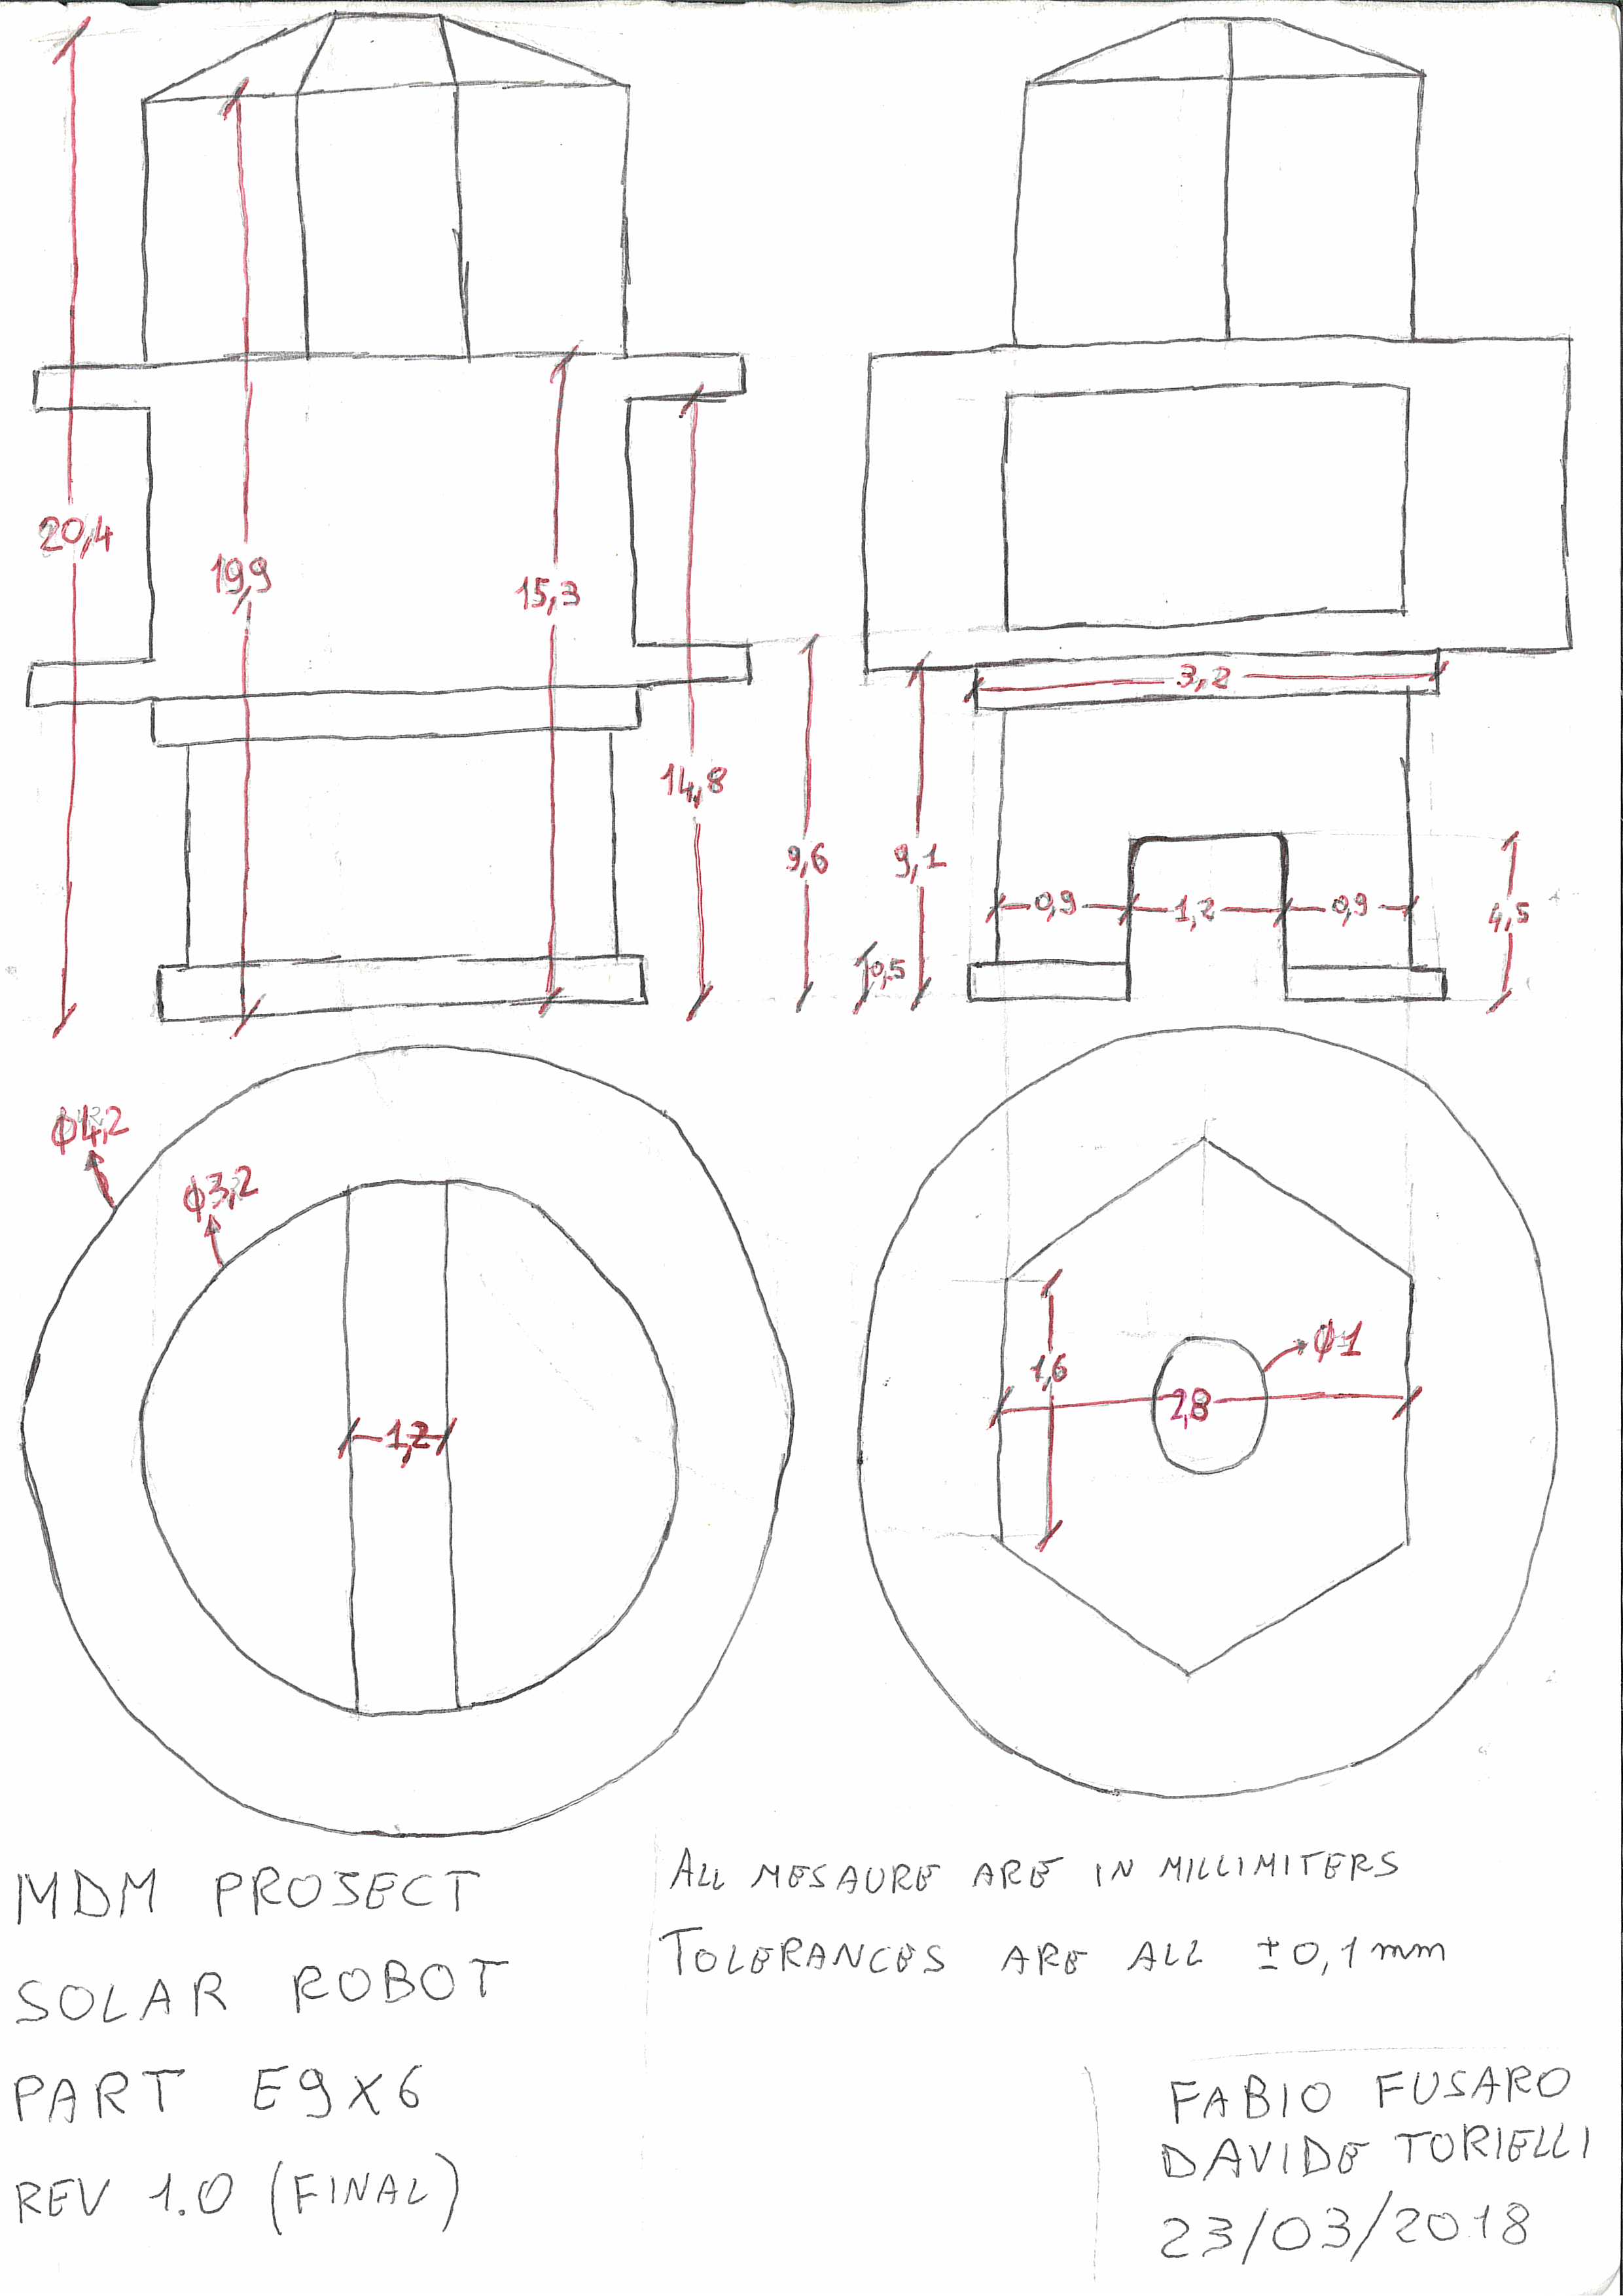 20,4
19,9
15,3
14,8
9,6
9,1
0,5
3,2
0,9
1,2
0,9
4,5
Ø4,2
Ø3,2
1,2
1,6
2,8
Ø1
MDM PROJECT
SOLAR ROBOT
PART E9X6
REV 1.0 (FINAL)
ALL MESAURE ARE IN MILLIMITERS
TOLERANCES ARE ALL ±0,1mm
FABIO FUSARO
DAVIDE TORIELLI
23/03/2018